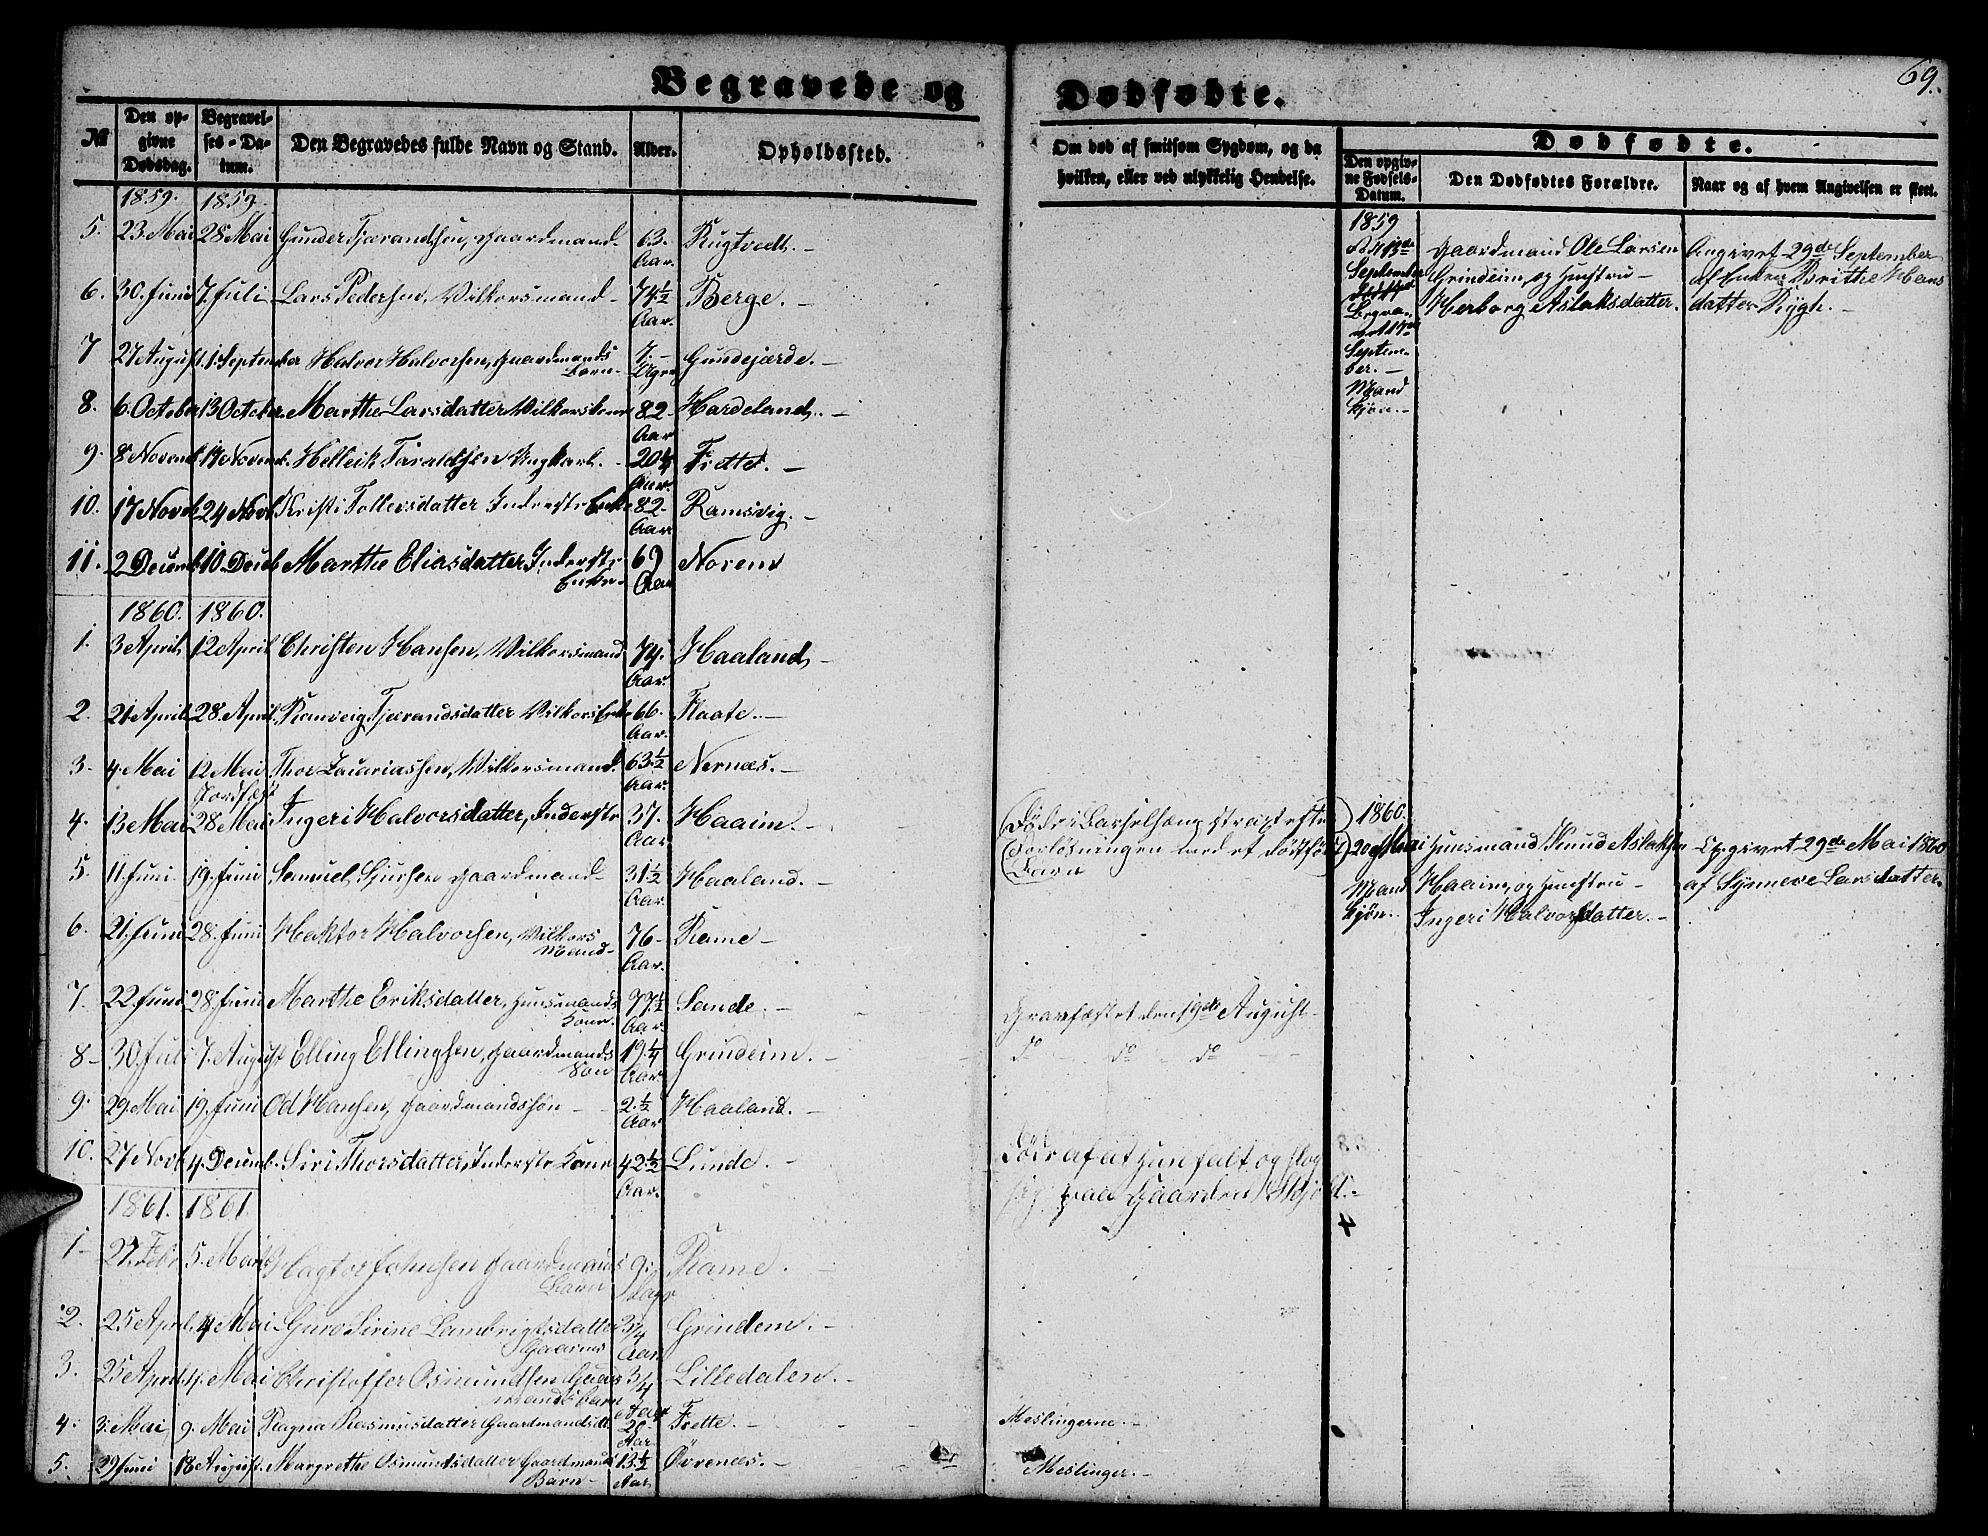 69.
Begravede og Dødfødte.
№
Den opgivne Dødsdag.
Begravelses-Datum.
Den Begravedes fulde Navn og Stand.
Alder.
Opholdssted.
Om død af smitsom Sygdom, og da hvilken, eller ved ulykkelig Hendelse.
Dødfødte.
Den opgivne Fødsels-Datum.
Den Dødfødtes Forældre.
Naar og af hvem Angivelsen er skeet.
1859. 1859.
5. 23 Mai 28 Mai Gunder Tjærandsen, Gaardmand 63. Aar. Rugtvedt.
6. 30. Juni 7. Juli Lars Pedersen, Vilkorsmand 74½ Aar. Berge.
7 27 August 1. September Halvor Halvorsen, Gaardmands Barn 7. Gundejærde.
8. 6. October 13 October Marthe Larsdatter Vilkorskone 82 Aar Hardeland.
9. 8 Novemb. 17 Novemb. Helleik Taraldsen Ungkarl. 20¼ Aar. Frette.
10. 17 Novb 24 Novb Kristi Tollevsdatter Inderste Enke 82 Aar Ramsvig.
11. 2 Decemb 10. Decb Marthe Eliasdatter Inderste Enke 69 Aar Norem
1859
September
Begra-
vet 17de
September.
Mandkjøn.
Gaardmand Ole Larsen
Grindeim, og Hustru
Herborg Aslaksdatter.
Angivet 29de September
af Enken Brithe Hans
datter Rygh.
1860. 1860.
1. 3 April 12 April Christen Hansen, Vilkorsmand 74. Aar. Haaland
2. 21 April 28. April Ranveig Tjærandsdatter Vilkors Enke 66. Aar. Flaate.
3. 4. Mai 12 Mai Thor Zacariassen, Vilkorsmand 63½ Aar. Nernæs.
Jordfæst
4. 13 Mai 28 Mai Ingeri Halvorsdatter, Inderste 37. Aar. Haaim.
Døde i Barselseng strax efter
Forløsningen med et dødfødt
Barn
1860.
20 Mai
Mandkjøn.
Huusmand Knud Aslaksen
Haaim, og Hustru
Ingeri Halvorsdatter.
Opgivet 29de Mai 1860
af Synneve Larsdatter.
5. 11. Juni 19. Juni Samuel Sjursen Gaardmand 31½ Aar. Haaland.
6. 21. Juni 28. Juni Haktor Halvorsen, Vilkors Mand 76 Aar. Rame
7. 22. Juni 28. Juni Marthe Eriksdatter, Huusmands Kone. 77½ Aar. Sande.
Gravfæstet den 19de August
8 30. Juli 7. August Elling Ellingsen, Gaardmands Søn 19¼ Aar. Grindeim.
do do do
9. 29 Mai 19. Juni Od Hansen, Gaardmandssøn 2½ Aar Haaland.
10. 27 Novb 4. Decemb. Siri Thorsdatter, Inderste Kone 42½ Aar. Lunde.
Døde af at Hun falt og slog
sig paa Gaarden Skjold.
1861. 1861.
1 27. Febr 5. Marts Hagtor Johnsen Gaardmands Barn 9. Dage Rame.
2. 25 April 4 Mai Guro Sirine Lambrigtsdatter 3/4 Aar Grindem.
3. 25 April 4. Mai Christoffer Osmundsen Gaardmands barn 3/4 Aar Lilledalen.
4. 3. Mai 9. Mai Ragna Rasmusdatter Gaardmandsdtt. 20 Aar Frette.
Meslingerne.
5. 29 Juni 18 August. Margrethe Osmundsdatter Gaardmands Barn 13½ Aar. Øvrenæs.
Meslinger.